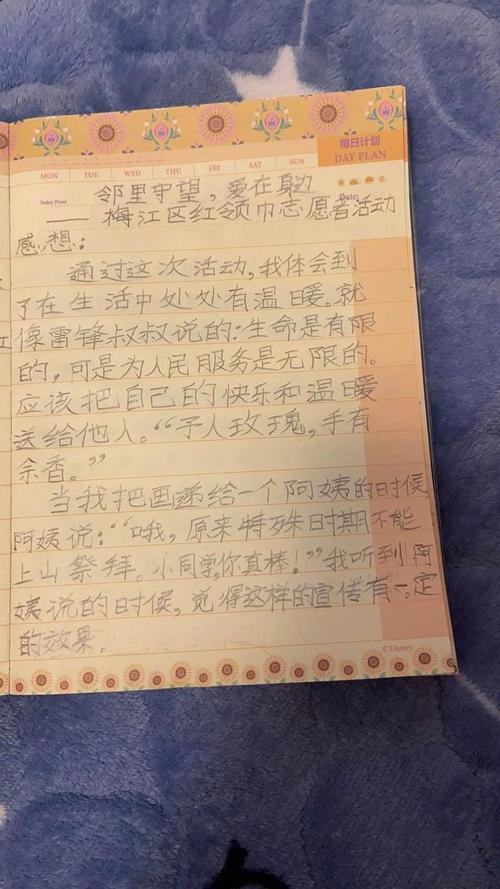 每日计划
DAY PLAN
MON TUE WED THU FRI SAT SUN
Today Plans
Date:
邻里守望，爱在身边
——梅江区红领巾志愿者活动
感想：
通过这次活动，我体会到
了在生活中处处有温暖。就
像雷锋叔叔说的：生命是有限
的，可是为人民服务是无限的。
应该把自己的快乐和温暖
送给他人。“予人玫瑰，手有
余香。”
当我把画递给一个阿姨的时候，
阿姨说：“哦，原来特殊时期不能
上山祭拜。小同学，你真棒！”我听到阿
姨说的时候，觉得这样的宣传有一定
的效果。
© Disney